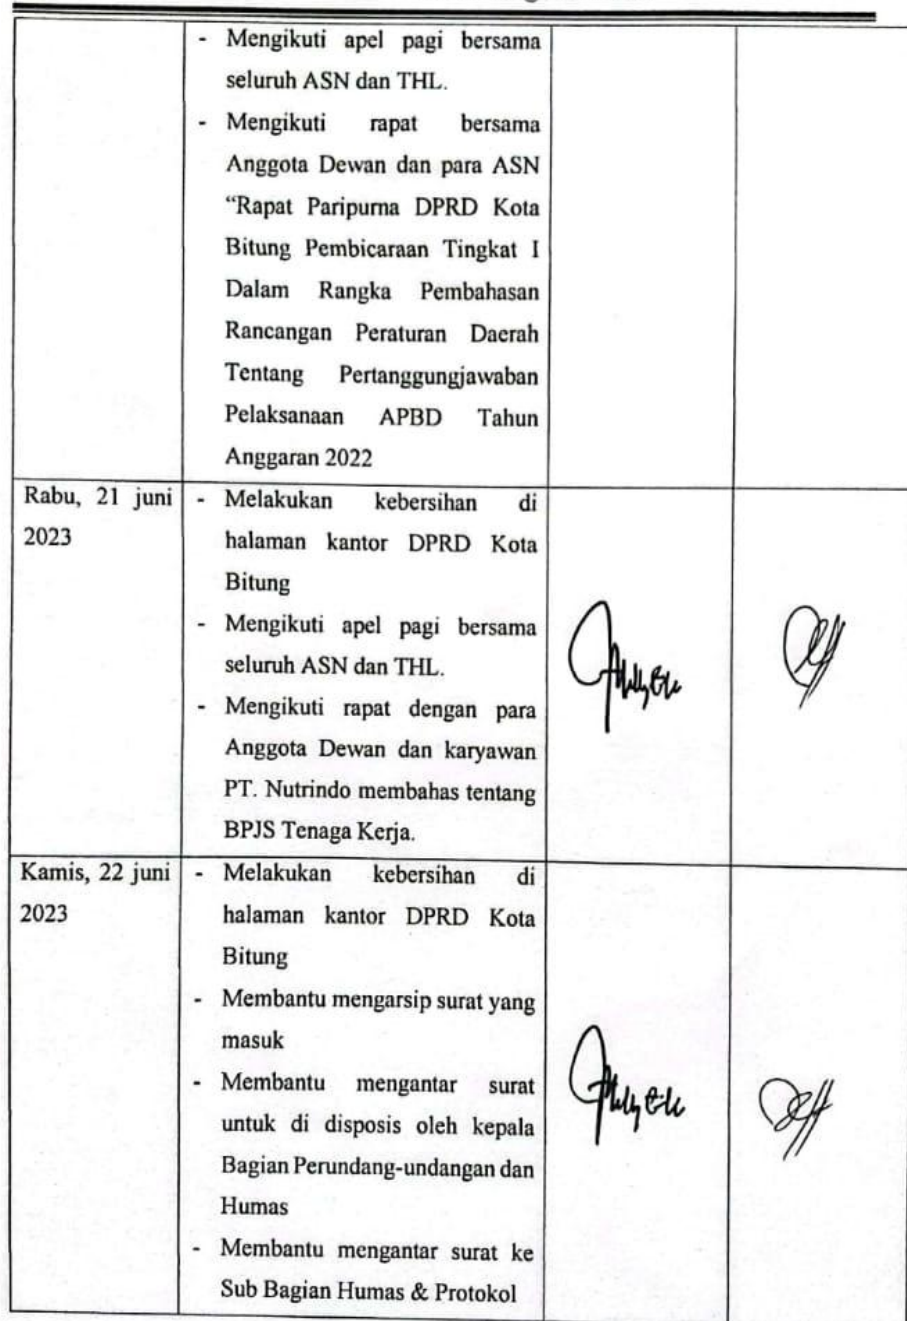 - Mengikuti apel pagi bersama
seluruh ASN dan THL.
- Mengikuti rapat bersama
Anggota Dewan dan para ASN
“Rapat Paripurna DPRD Kota
Bitung Pembicaraan Tingkat I
Dalam Rangka Pembahasan
Rancangan Peraturan Daerah
Tentang Pertanggungjawaban
Pelaksanaan APBD Tahun
Anggaran 2022
Rabu, 21 juni
2023
- Melakukan kebersihan di
halaman kantor DPRD Kota
Bitung
- Mengikuti apel pagi bersama
seluruh ASN dan THL.
- Mengikuti rapat dengan para
Anggota Dewan dan karyawan
PT. Nutrindo membahas tentang
BPJS Tenaga Kerja.
Kamis, 22 juni
2023
- Melakukan kebersihan di
halaman kantor DPRD Kota
Bitung
- Membantu mengarsip surat yang
masuk
- Membantu mengantar surat
untuk di disposis oleh kepala
Bagian Perundang-undangan dan
Humas
- Membantu mengantar surat ke
Sub Bagian Humas & Protokol